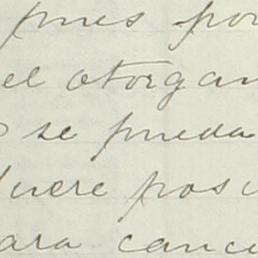 pues por
el otorgan
se pueda
fuere posi
para cance